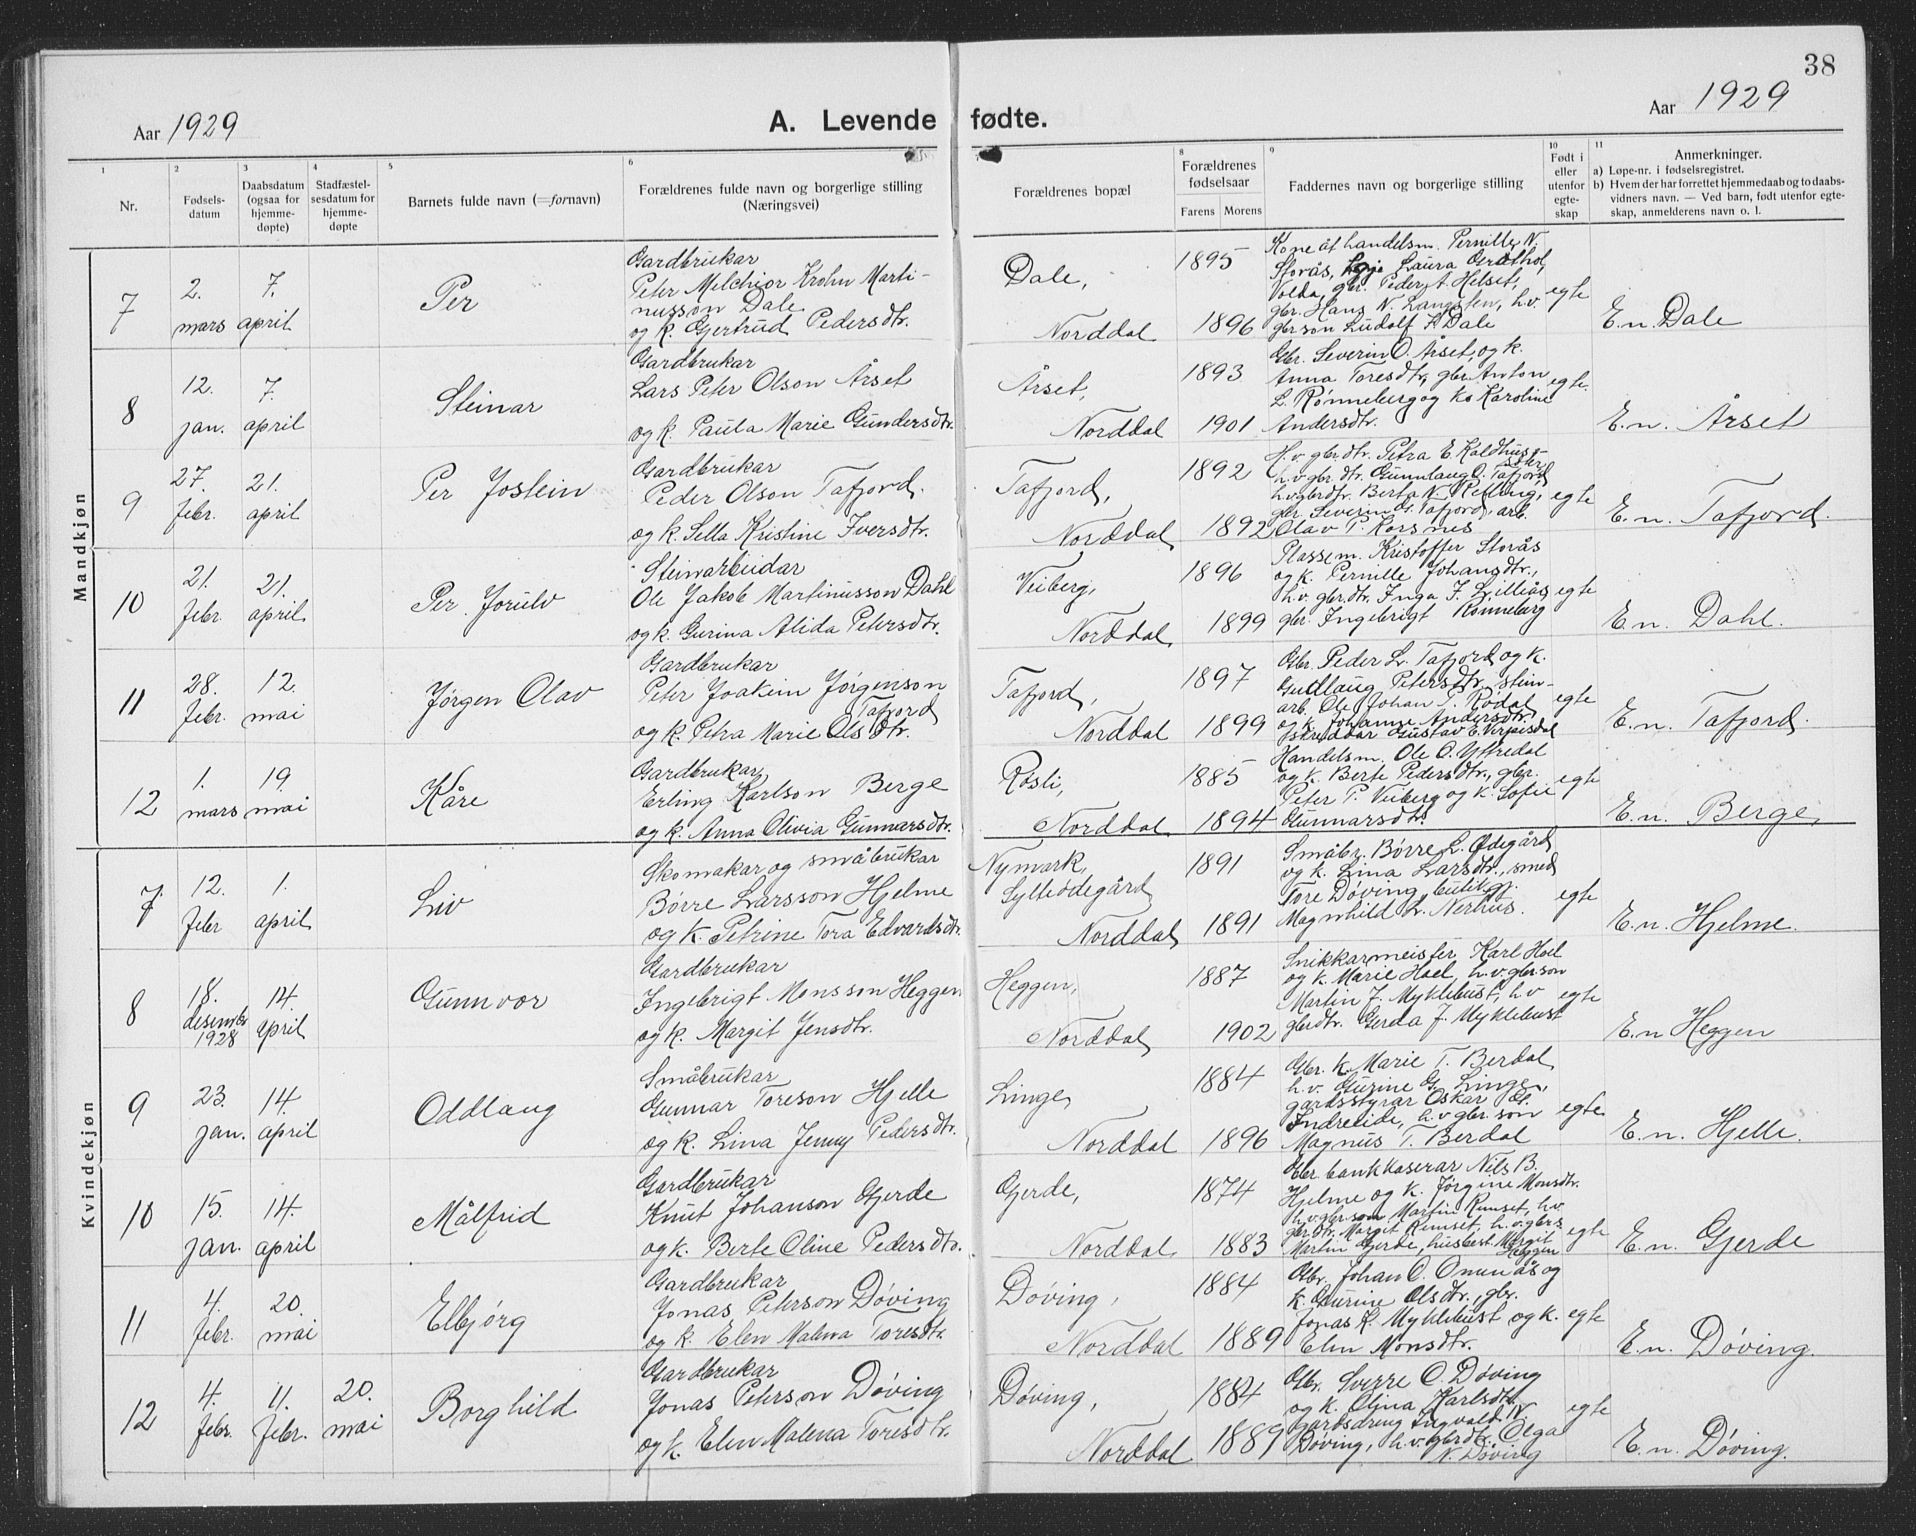 38
Aar 1929
A. Levende fødte.
Aar 1929
1
2
3
4
5
6
8
9
10
11
Nr.
Fødsels-
datum
Daabsdatum
(ogsaa for
hjemme-
døpte)
Stadfæstel-
sesdatum for
hjemme-
døpte
Barnets fulde navn (=fornavn)
Forældrenes fulde navn og borgerlige stilling
(Næringsvei)
Forældrenes bopæl
Forældrenes
fødselsaar
Farens Morens
Faddernes navn og borgerlige stilling
Født i
eller
utenfor
egte-
skap
Anmerkninger.
a) Løpe-nr. i fødselsregistret.
b) Hvem der har forrettet hjemmedaab og to daabs-
vidners navn. — Ved barn, født utenfor egte-
skap, anmelderens navn o. l.
Mandkjøn
7
2.
mars
7.
april
Per
Gardbrukar
Peter Melchior Krohn Marti-
nusson Dale
og k. Gjertrud Pedersdtr.
Dale,
Norddal
1895
1896
Kone åt handelsm. Pernille N.
Storås, Laura
Volda, gbr. Peder A. Helset,
gbr. Hans N. Langsten, h.v.
gbrson Ludolf K. Dale
egte
E.n. Dale
8
12.
jan.
7.
april
Steinar
Gardbrukar
Lars Peter Olson Årset
og k. Paula Marie Gundersdtr.
Årset,
Norddal
1893
1901
Gbr. Severin O. Årset, og k.
Anna Toresdtr, gbr. Anton
L. Rønneberg og ko Karoline
Andersdtr.
egte.
E.n. Årset
9
27.
febr.
21.
april
Per Jostein
Gardbrukar
Peder Olson Tafjord.
og k. Sella Kristine Iversdtr.
Tafjord,
Norddal
1892
1892
H.v gbr.dtr. Petra E. Kaldhus-
h.v gbr. dtr. Gunnlaug O. Tafjord
h.v gbrdtr. Berta N. Relling,
gbr. Severin Tafjord, arb.
Olav P. Korsnes
egte
E.n. Tafjord.
10
21.
febr.
21.
april
Per Jorulv
Steinarbeidar
Ole Jakob Martinusson Dahl
og k. Gurina Alida Petersdtr.
Veiberg,
Norddal
1896
1899
Plassem. Kristoffer Storås
og k. Pernille Johansdtr.,
h.v. gbr.dtr. Inga J. Lilliås
gbr. Ingebrigt Rønneberg
egte
E.n. Dahl.
11
28.
febr.
12.
mai
Jørgen Olav
Gardbrukar
Peter Joakim Jørgenson
Tafjord
og k. Petra Marie Olsdtr.
Tafjord,
Norddal
1897
1899
Gbr. Peder L. Tafjord og k.
Gudlaug Petersdtr, stein-
arb. Ole Johan T. Rødal
og k. Johanne Andersdtr,
skreddar Gustav E. Verpesdal
egte
E.n. Tafjord.
12
1.
mars
19.
mai
Kåre
Gardbrukar,
Erling Karlson Berge
og k. Anna Olivia Gunnarsdtr.
Røsli,
Norddal
1885
1894
Handelsm. Ole O. Yttredal
og k. Berte Pedersdtr., gbr.
Peter P. Veiberg og k. Sofie
Gunnarsdtr.
egte
E.n. Berge,
Kvindekjøn
7.
12.
febr
1.
april
Liv
Skomakar og småbrukar
Børre Larsson Hjelme
og k. Petrine Tora Edvardsdtr.
Nymark,
Sylteødegård
Norddal
1891
1891
Småbr. Børre L. Ødegård
og k. Lina Larsdtr., smed
Tore Døving, butikj.
Magnhild L. Nerhus.
egte
E.n. Hjelme.
8
18.
desember
1928
14
april
Gunnvor
Gardbrukar
Ingebrigt Monsson Heggen
og k. Margit Jensdtr.
Heggen,
Norddal
1887
1902
Snikkarmeister Karl Hoel
og k. Marie Hoel, h.v. gbrson
Martin J. Myklebust, h.v
gbrdtr. Gerda J. Myklebust
egte
E.n Heggen
9
23.
jan.
14.
april
Oddlaug
Småbrukar
Gunnar Toreson Hjelle
og k. Lina Jenny Pedersdtr.
Linge,
Norddal
1884
1896
Gbr. k. Marie T. Berdal
h.v. Gurine G. Linge,
gardsstyrar Oskar El.
Indreeide, h.v gbr. son
Magnus T. Berdal
egte.
E.n. Hjelle.
10
15.
jan.
14.
april
Målfrid
Gardbrukar
Knut Johanson Gjerde
og k. Berte Oline Pedersdtr.
Gjerde,
Norddal
1874
1883
Gbr bankkaserar Nils B.
Hjelme og k. Jørgine Monsdtr.
h.v gbr. son Martin Remset, h.v
gbr.dtr. Margit Remset, h.v. gbrs
Martin Gjerde, husbest. Margit
Heggen
egte
E.n. Gjerde
11
4.
febr.
20.
mai
Elbjørg
Gardbrukar
Jonas Peterson Døving
og k. Elen Malena Toresdtr.
Døving,
Norddal
1884
1889
Gbr. Johan O. Omenås og
k. Gurine Olsdtr., gbr.
Jonas K. Myklebust og k.
Elen Monsdtr.
egte
E.n. Døving.
12
4.
febr.
11.
febr.
20.
mai
Borghild
Gardbrukar
Jonas Peterson Døving
og k. Elen Malena Toresdtr.
Døving,
Norddal
1884
1889
Gbr. Sverre O. Døving
og k. Olina Karlsdtr.
gardsdreng Ingvald N.
Døving, h.v. gbrdtr. Olga
N. Døving
egte
E.n. Døving.